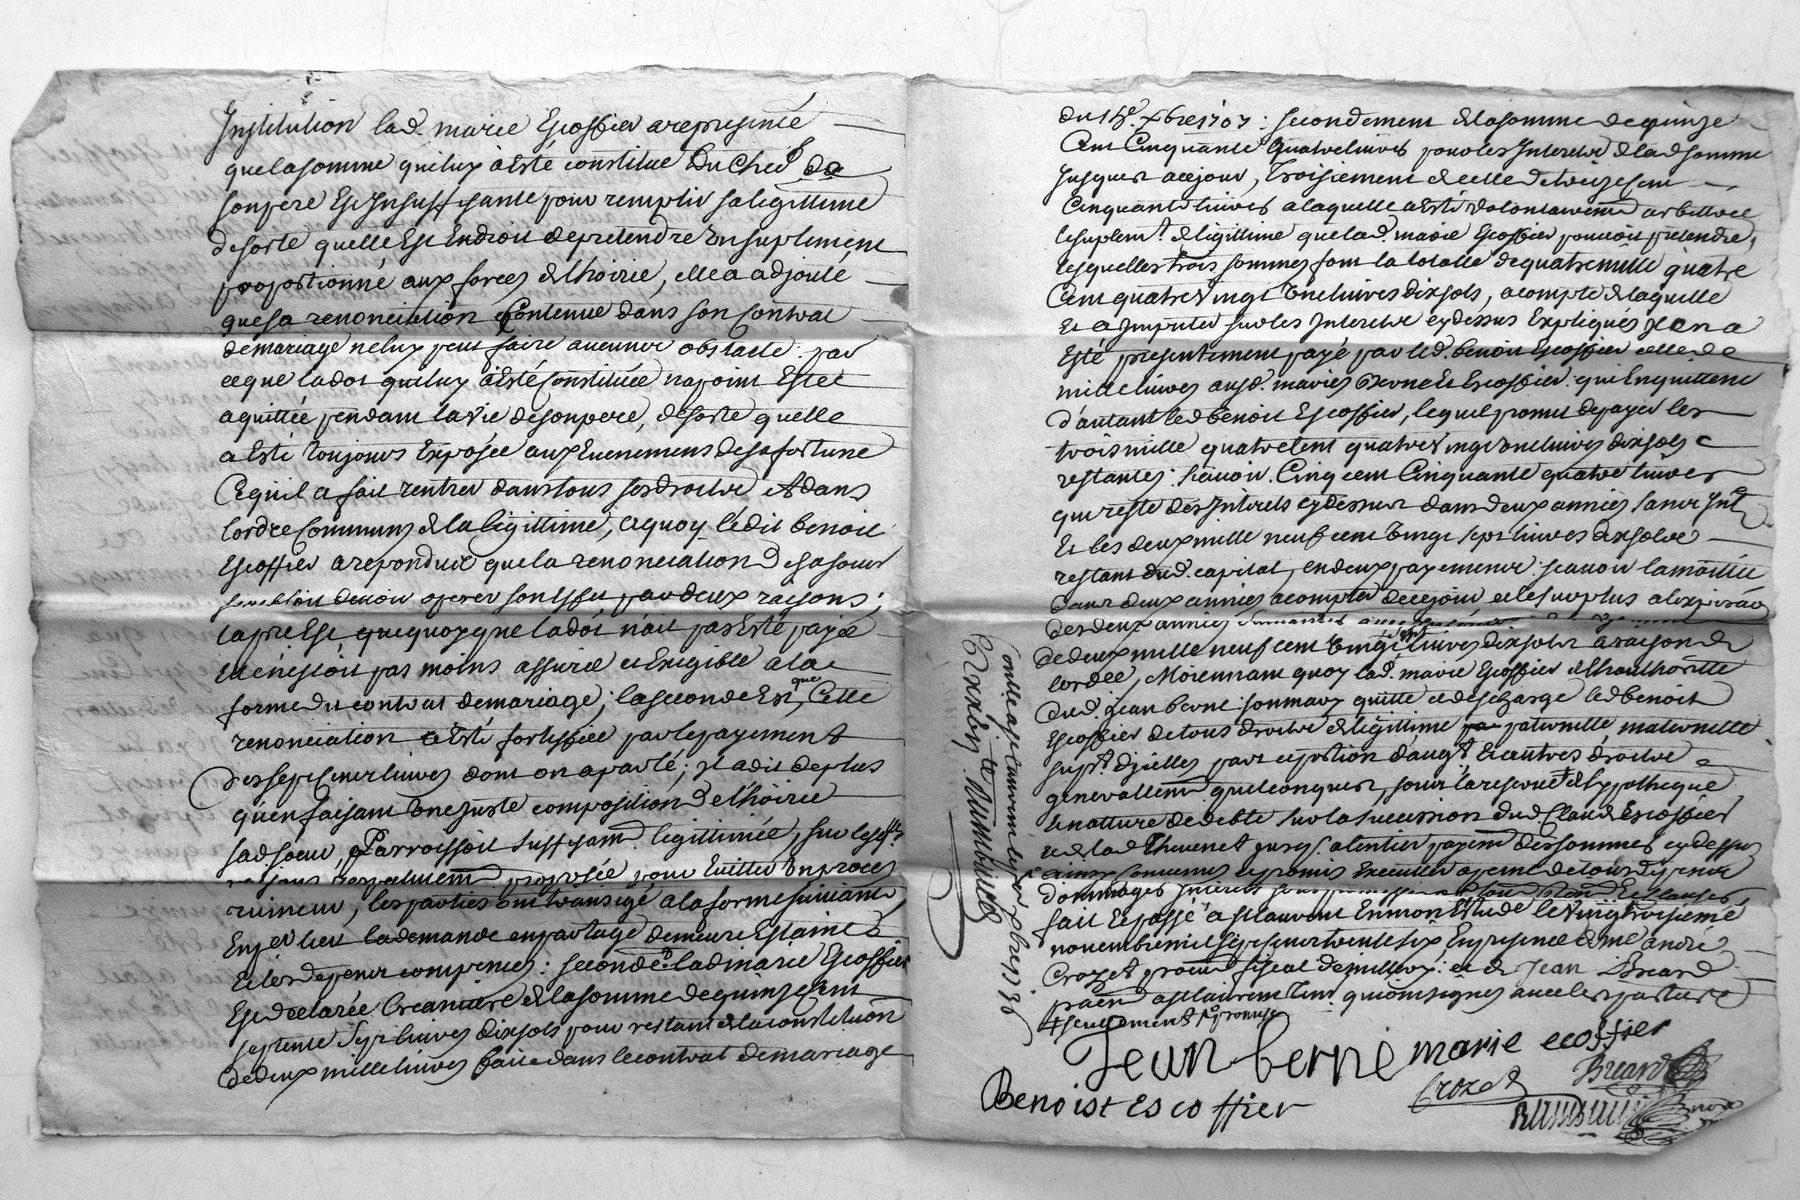 Institution lad. marie Escoffier a represente
que la somme qui luy à esté constitué Du Chef de
son pere Est Insuffisante pour remplir sa legittime
de sorte quelle Est En droit de pretendre un supplement
proportionné aux forces de lhoirie, elle a adjouté
que sa renonciation Contenue dans son Contrat
de mariage ne luy peut faire aucunne obstacle par
ce que la dot qui luy à Esté Constituée na point Esté
aquittée pendant la vie de son pere, de sorte quelle
a Esté toujours Exposée aux Evenemens de sa fortune
Ce qui la fait rentrer dans tous ses droits et dans
lordre Commun de la legittime, a quoy ledit benoit
Escoffier a repondu que la renonciation de sa soeur
sembloit devoir operer son Effet par deux raisons;
la pre Est que quoy que la dot nait pas Esté payée
elle nestoit pas moins assurée et Exigible a la
forme du contrat de mariage; la seconde Est, que Cette
renonciation a Esté fortiffiée par le payement
des sept cent livres dont on a parlé; Il a dit de plus
qu'en faisant une juste composition de lhoirie
sa d. soeur, Parroissoit suffisam.t legittimée, sur lesq.lles
raisons respectivem.t proposées pour Eviter un proces
ruineux, les parties ont transigé a la forme suivante,
En per lieu la demande en partage demeure Estainte
Et les depens compensés: seconde.t lad. marie Escoffier
Est declarée Creanciere de la somme de quinze Cent
septente sept livres dix sols pour restant de la constitution
de deux mille livres faite dans le contrat de mariage
du 15e. xbre 1707: secondement de la somme de quinze
Cent Cinquante quatre livres pour les Interets de lad. somme
jusques a ce jour, troisiement de celle de treize cent
Cinquante livres a laquelle a esté volontairem.t arbittree
le suplem.t de legittime que lad. marie Escoffier pourroit pretendre,
lesquelles trois sommes font la totalle de quatre mille quatre
Cent quatre vingt une livres dix sols, a compte de laquelle
Et a Imputer sur les Interets cy dessus Expliqués Il en a
Esté presentement payé par led. benoit Escoffier celle de
mille livres ausd. mariés Berne Et Escoffier qui En quittent
d'autant led benoit Escoffier, lequel promet de payer les
trois mille quatre Cent quatre vingt une livres dix sols
restantes: scavoir. Cinq cent Cinquante quatre livres
qui reste des Interets cy dessus dans deux années sans Int.
Et les deux mille neuf cent vingt sept livres dix sols
restant dud. capital, en deux payemens: scavoir la moittie
dans deux années a compter de ce jour et le surplus a lexpiraõn
des deux années
de deux mille neuf cent vingt sept livres dix sols a raison de
lordce, Moiennant quoy lad. marie Escoffier de lhauthoritte
dud. jean berne son mary quitte et descharge led benoit
Escoffier de tous droits de legittime paternelle, maternelle
supt. d'jcelles part et portion daugt. Et autres droits
generallem.t quelconques, sous la reserve de lhypotheque
Et natture de debte sur la succession dud. Claude Escoffier
et de lad Thevenet jusq. a lentier payem.t des sommes cy dessus
ainsy convenu et promis Executer a peine de tous depens
dommages Interets
fait Et passé a st laurent En mon Etude le vingt troisieme
novembre mil sept cent trente six En presence de me andré
Crozet procu.r fiscal de millery: et de Jean Breard
praēn a st laurent tem. qui ont signés avec les parties
# seullement promise
Jean berne marie ecoffier
Benoist escoffier Crozet Breard
Controllé a st laurent le xbre 1736